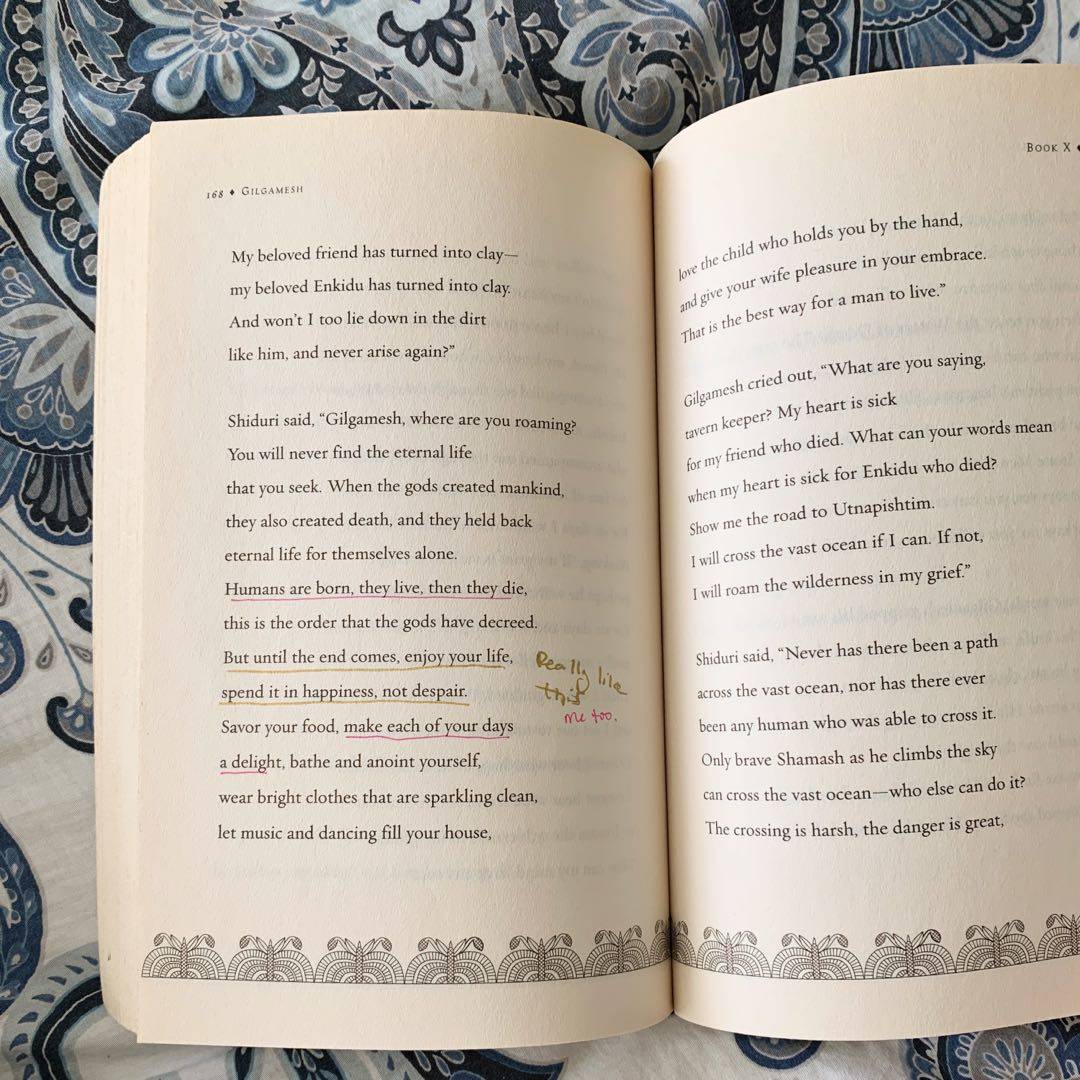 168 ♦ GILGAMESH
My beloved friend has turned into clay—
my beloved Enkidu has turned into clay.
And won't I too lie down in the dirt
like him, and never arise again?"
Shiduri said, "Gilgamesh, where are you roaming?
You will never find the eternal life
that you seek. When the gods created mankind,
they also created death, and they held back
eternal life for themselves alone.
Humans are born, they live, then they die,
this is the order that the gods have decreed.
But until the end comes, enjoy your life,
spend it in happiness, not despair.
Savor your food, make each of your days
a delight, bathe and anoint yourself,
wear bright clothes that are sparkling clean,
let music and dancing fill your house,
Really like
this
me too.
BOOK X ♦
love the child who holds you by the hand,
and give your wife pleasure in your embrace.
That is the best way for a man to live."
Gilgamesh cried out, "What are you saying,
tavern keeper? My heart is sick
for my friend who died. What can your words mean
when my heart is sick for Enkidu who died?
Show me the road to Utnapishtim.
I will cross the vast ocean if I can. If not,
I will roam the wilderness in my grief."
Shiduri said, "Never has there been a path
across the vast ocean, nor has there ever
been any human who was able to cross it.
Only brave Shamash as he climbs the sky
can cross the vast ocean—who else can do it?
The crossing is harsh, the danger is great,